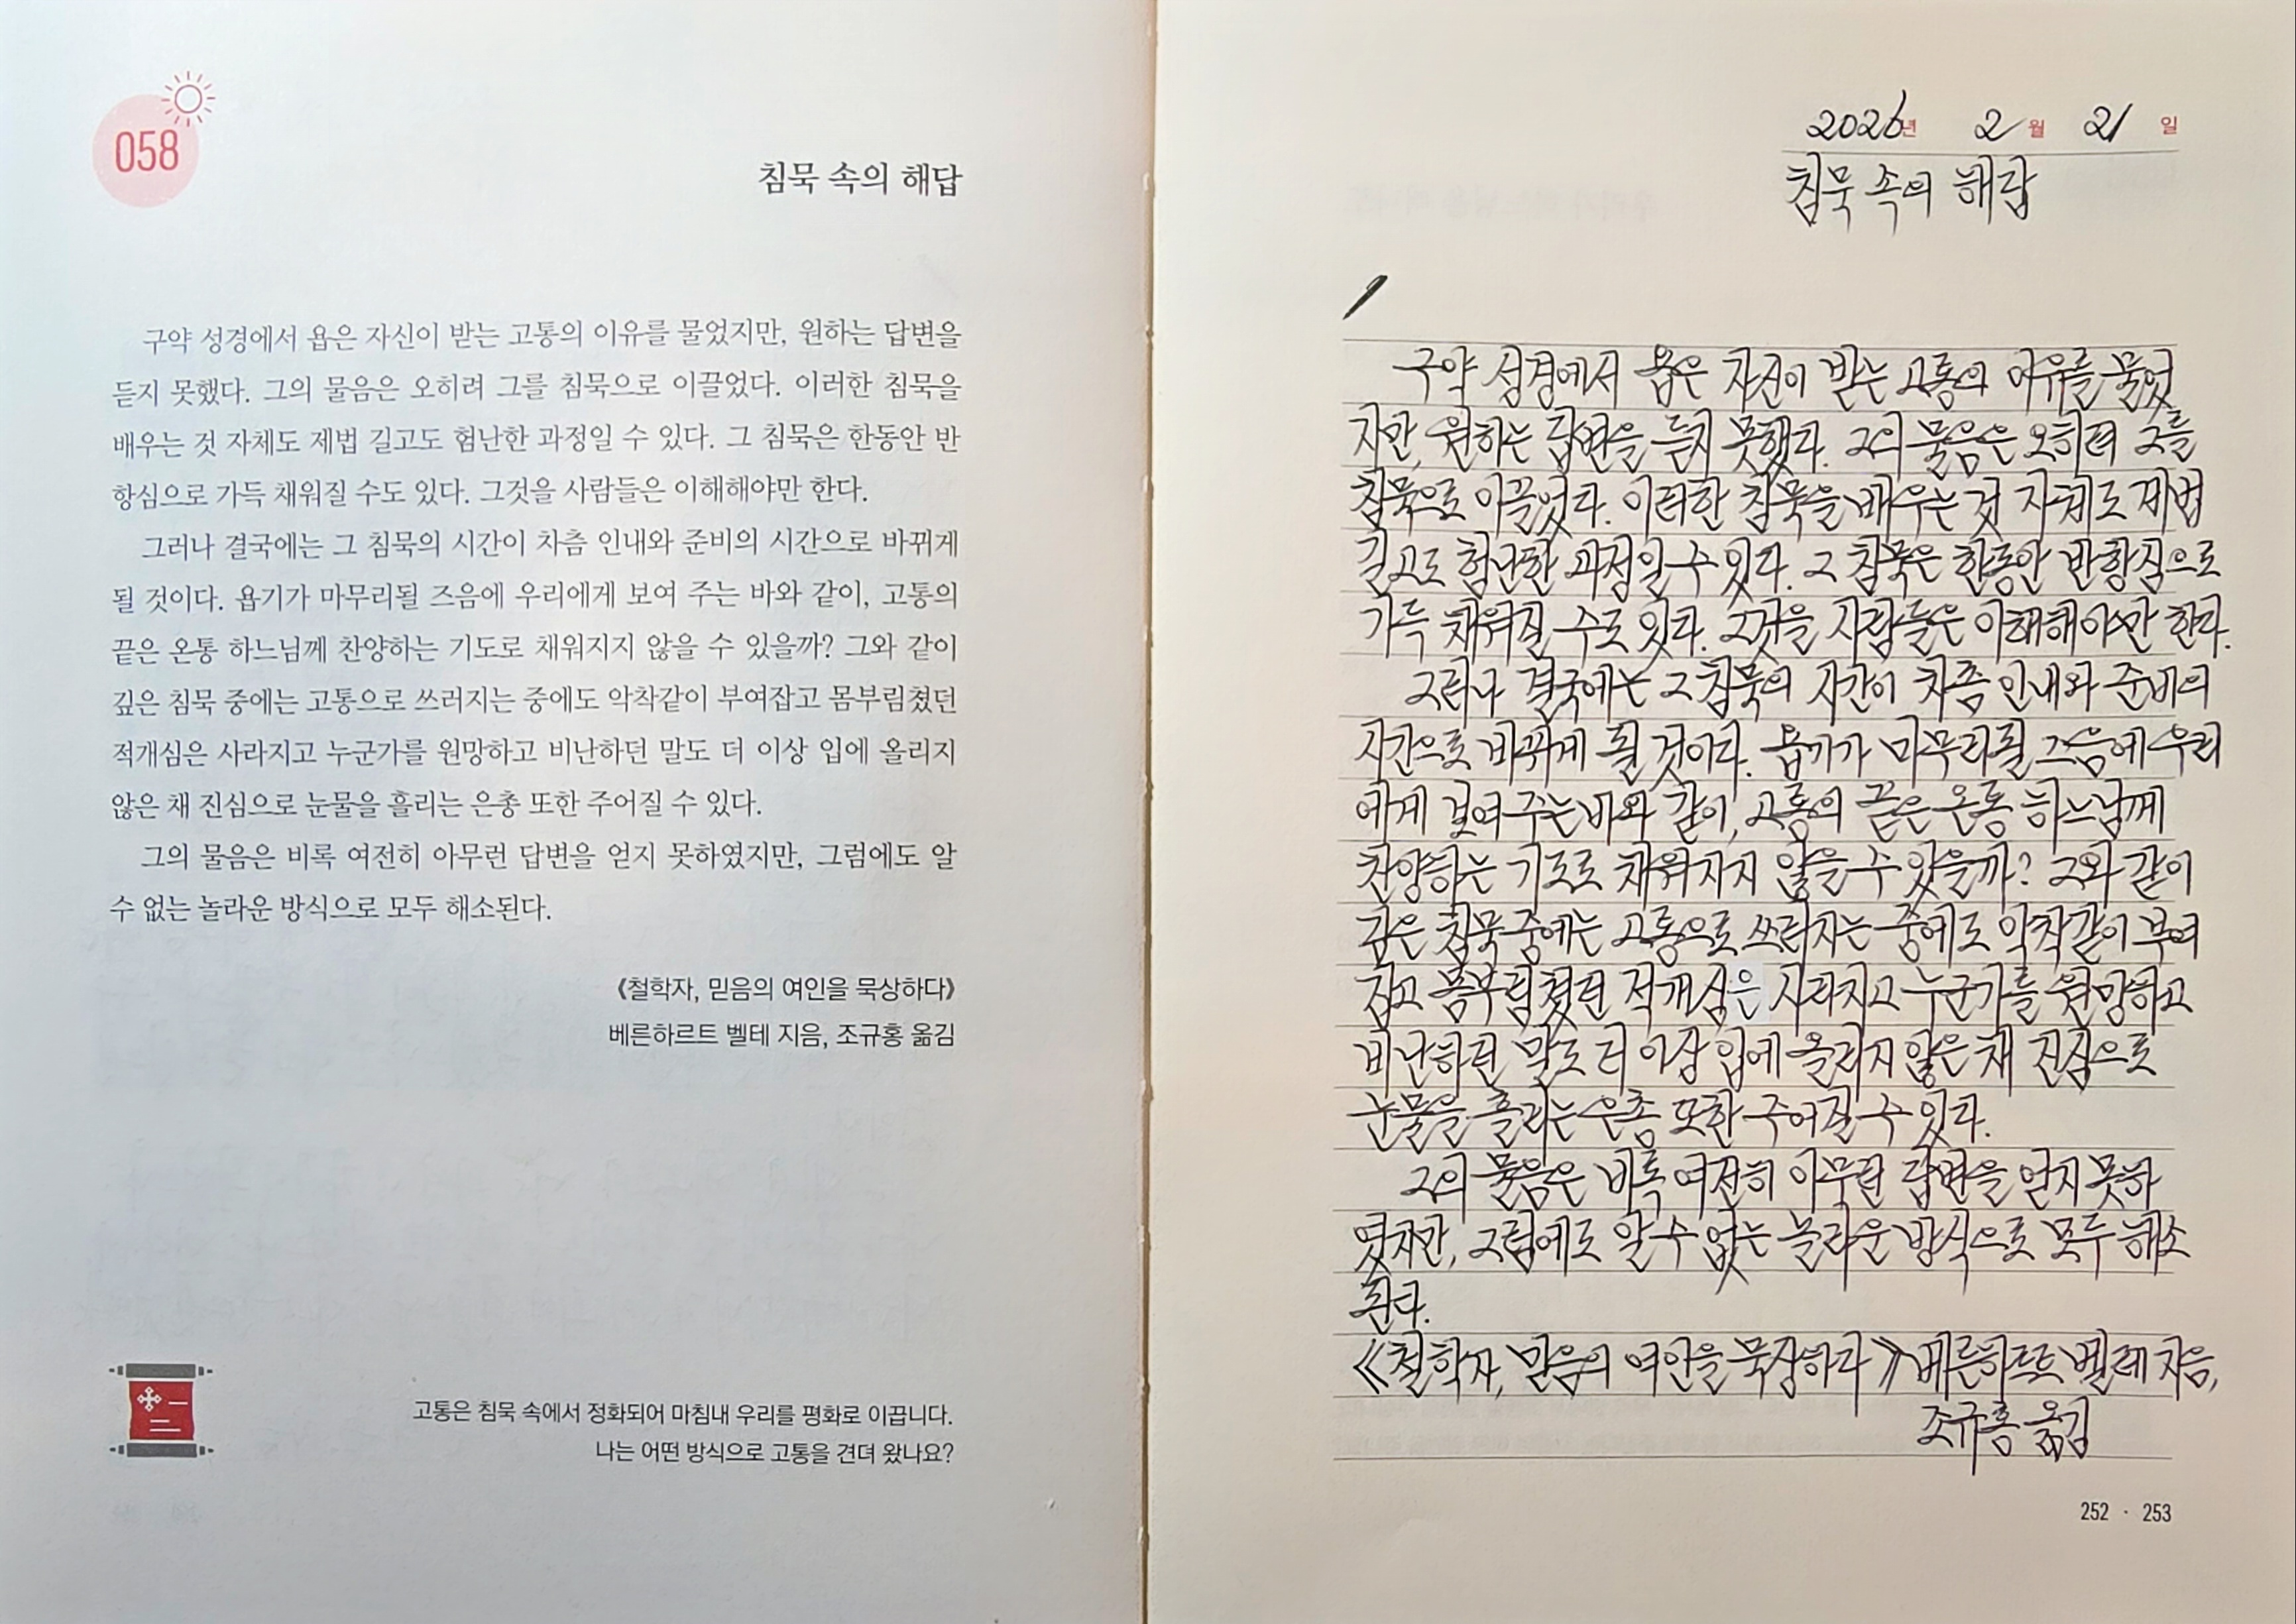 058
침묵 속의 해답
구약 성경에서 욥은 자신이 받는 고통의 이유를 물었지만, 원하는 답변을
듣지 못했다. 그의 물음은 오히려 그를 침묵으로 이끌었다. 이러한 침묵을
배우는 것 자체도 제법 길고도 험난한 과정일 수 있다. 그 침묵은 한동안 반
항심으로 가득 채워질 수도 있다. 그것을 사람들은 이해해야만 한다.
그러나 결국에는 그 침묵의 시간이 차츰 인내와 준비의 시간으로 바뀌게
될 것이다. 욥기가 마무리될 즈음에 우리에게 보여 주는 바와 같이, 고통의
끝은 온통 하느님께 찬양하는 기도로 채워지지 않을 수 있을까? 그와 같이
깊은 침묵 중에는 고통으로 쓰러지는 중에도 악착같이 부여잡고 몸부림쳤던
적개심은 사라지고 누군가를 원망하고 비난하던 말도 더 이상 입에 올리지
않은 채 진심으로 눈물을 흘리는 은총 또한 주어질 수 있다.
그의 물음은 비록 여전히 아무런 답변을 얻지 못하였지만, 그럼에도 알
수 없는 놀라운 방식으로 모두 해소된다.
《철학자, 믿음의 여인을 묵상하다》
베른하르트 벨테 지음, 조규홍 옮김
고통은 침묵 속에서 정화되어 마침내 우리를 평화로 이끕니다.
나는 어떤 방식으로 고통을 견뎌 왔나요?
2026년 2월 21일
침묵 속의 해답
구약 성경에서 욥은 자신이 받는 고통의 이유를 물었
지만, 원하는 답변을 듣지 못했다. 그의 물음은 오히려 그를
침묵으로 이끌었다. 이러한 침묵을 배우는 것 자체도 제법
길고도 험난한 과정일 수 있다. 그 침묵은 한동안 반항심으로
가득 채워질 수도 있다. 그것을 사람들은 이해해야만 한다.
그러나 결국에는 그 침묵의 시간이 차츰 인내와 준비의
시간으로 바뀌게 될 것이다. 욥기가 마무리될 즈음에 우리
에게 보여 주는 바와 같이, 고통의 끝은 온통 하느님께
찬양하는 기도로 채워지지 않을 수 있을까? 그와 같이
깊은 침묵 중에는 고통으로 쓰러지는 중에도 악착같이 부여
잡고 몸부림쳤던 적개심은 사라지고 누군가를 원망하고
비난하던 말도 더 이상 입에 올리지 않은 채 진심으로
눈물을 흘리는 은총 또한 주어질 수 있다.
그의 물음은 비록 여전히 아무런 답변을 얻지 못하
였지만, 그럼에도 알 수 없는 놀라운 방식으로 모두 해소
된다.
《철학자, 믿음의 여인을 묵상하다》 베른하르트 벨테 지음,
조규홍 옮김
252 · 253